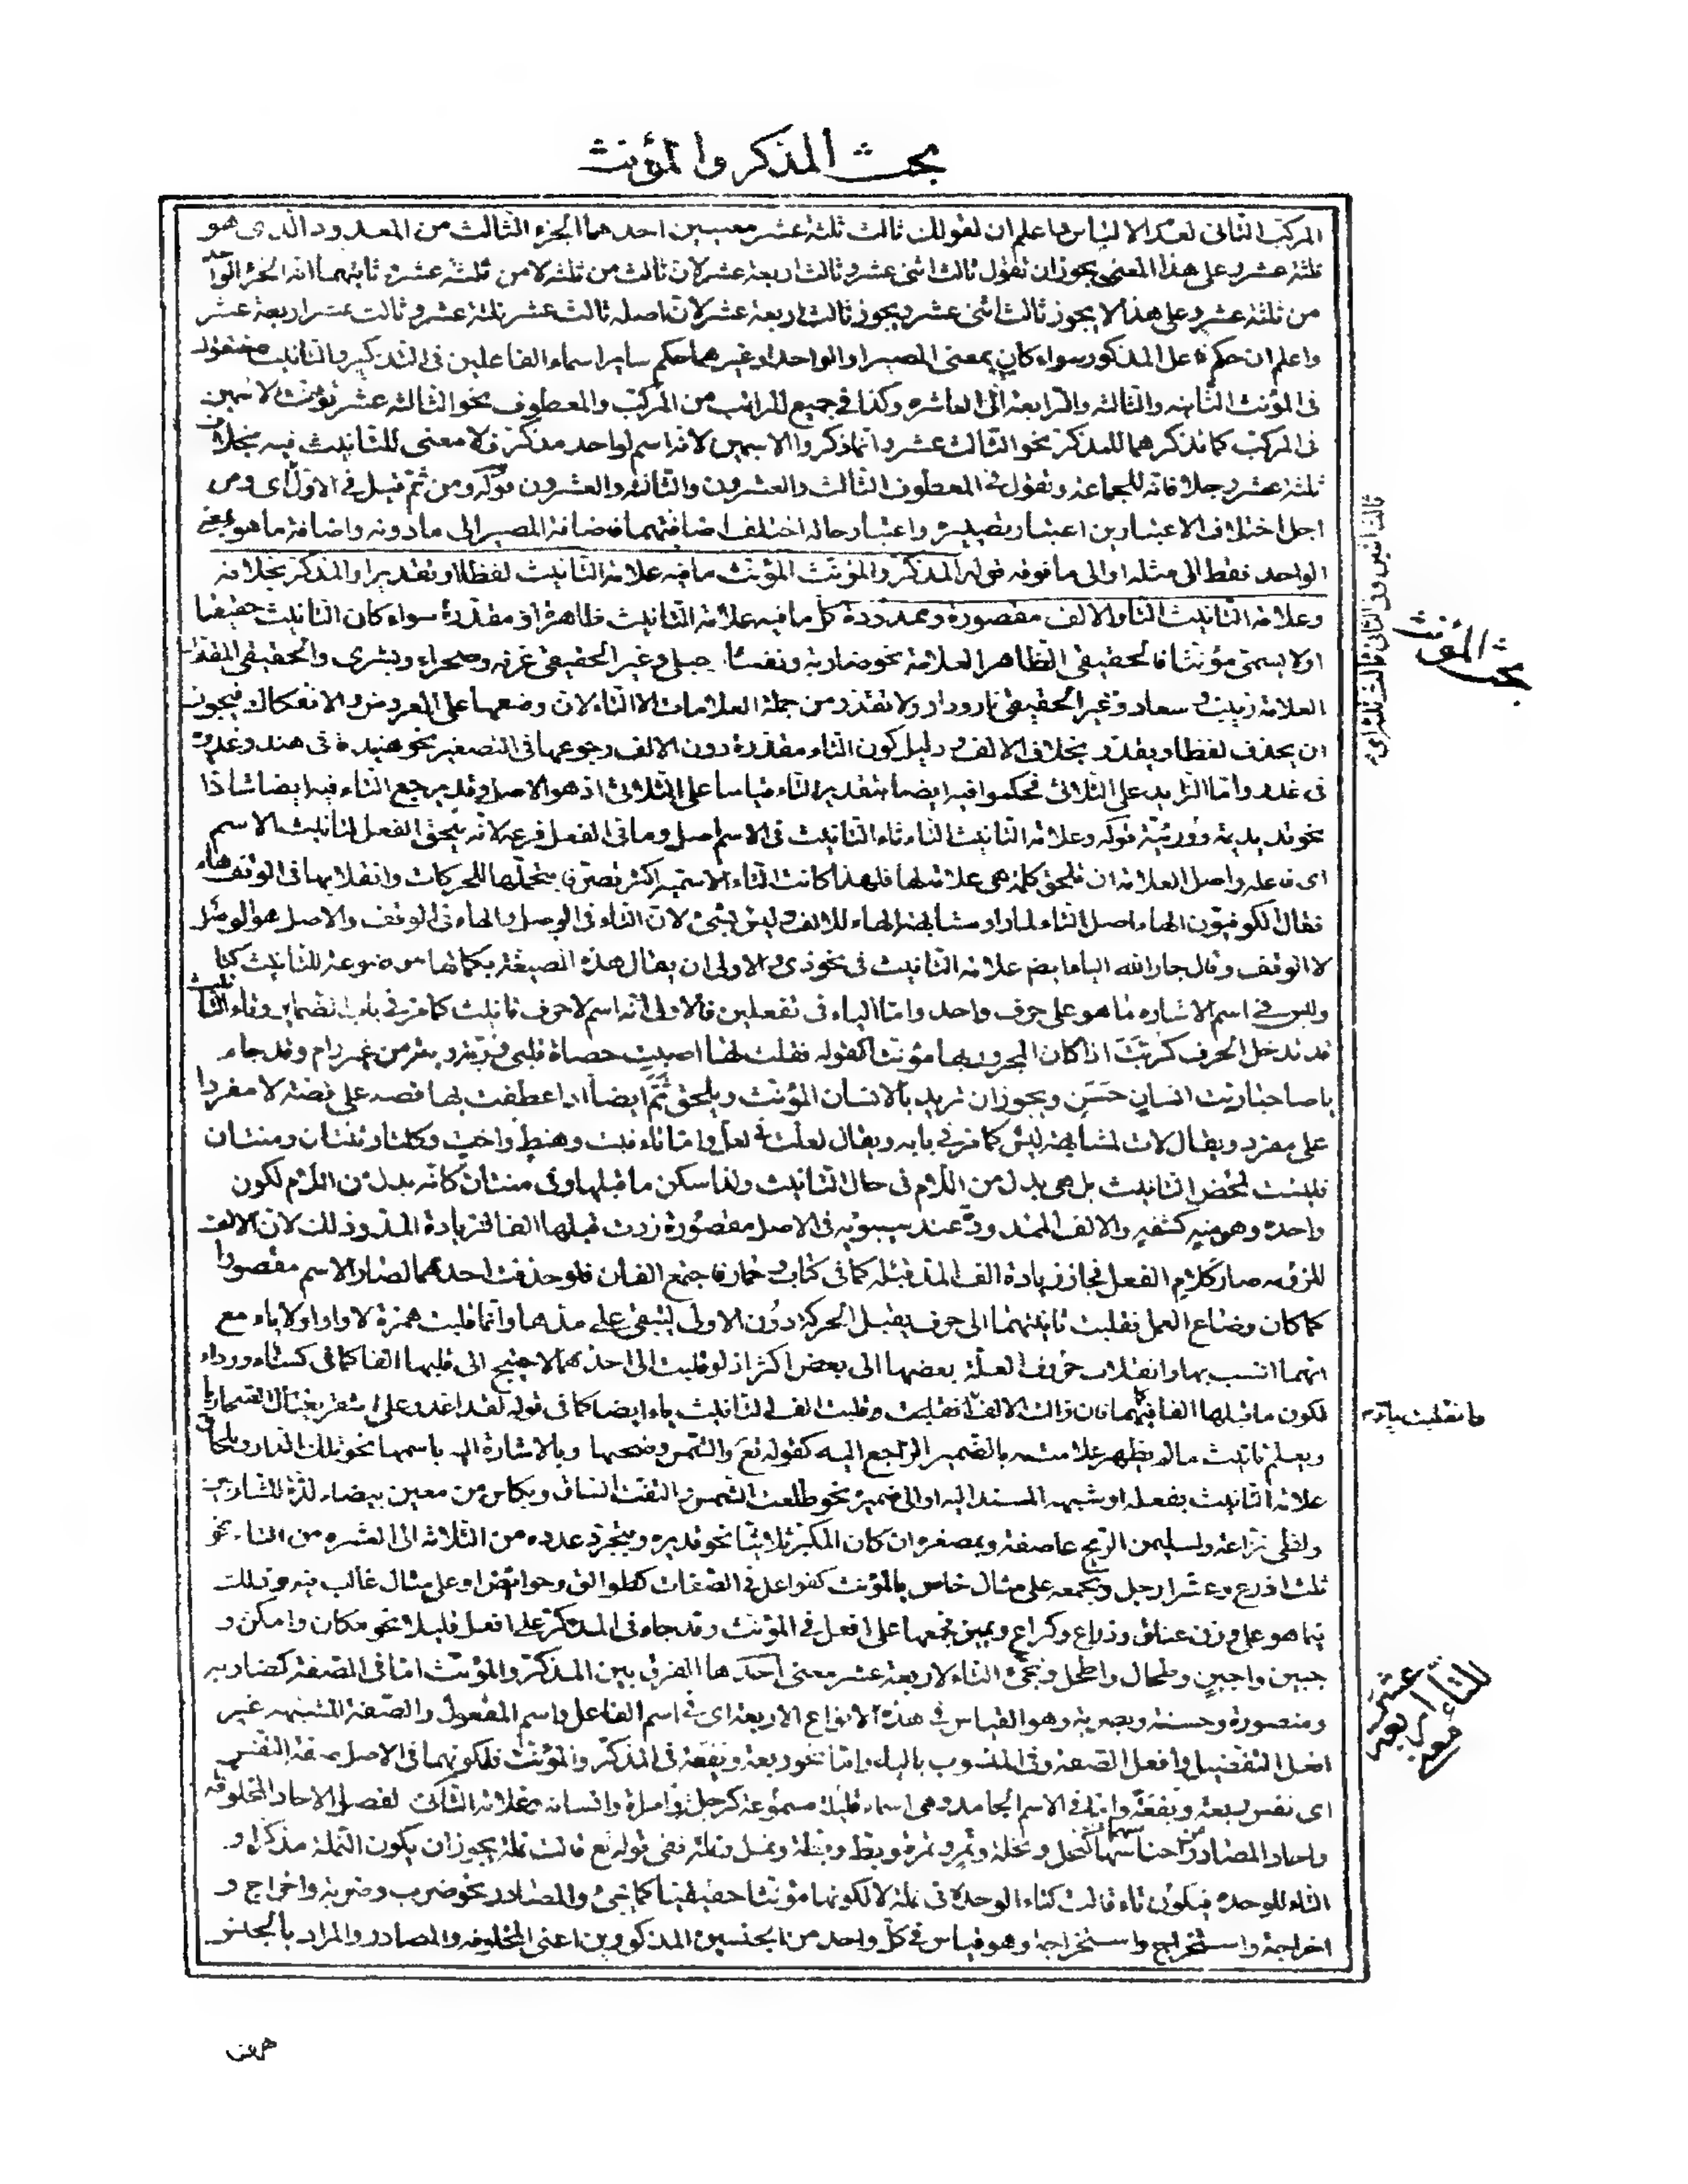 بحث المذكر والمؤنث
المركب الثانى لعدم الالباس واعلم ان لقولك ثالث ثلثة عشر معنيين احدهما الجزء الثالث من المعدود الذى هو
ثلثة عشر وعلى هذا المعنى يجوز ان تقول ثالث اثنى عشر وثالث اربعة عشر لان ثالث من ثلثة لا من ثلثة عشر وثانيهما انه الجزء الواحد
من ثلثة عشر وعلى هذا لا يجوز ثالث اثنى عشر ويجوز ثالث اربعة عشر لان اصله ثالث عشر ثلثة عشر وثالث عشر اربعة عشر
واعلم ان حكم فاعل المذكور سواء كان بمعنى المصير او الواحد او غيرهما حكم ساير اسماء الفاعلين فى التذكير والتانيث فتقول
فى المؤنث الثانية والثالثة والرابعة الى العاشرة وكذا فى جميع المراتب من المركب والمعطوف نحو الثالثة عشر تؤنث الاسمين
فى المركب كما تذكرهما للمذكر نحو الثالث عشر وانما ذكروا الاسمين لانه اسم لواحد مذكر فلا معنى للتانيث فيه بخلاف
ثلثة عشر رجلا فانه للجماعة وتقول فى المعطوف الثالث والعشرون والثالثة والعشرون قوله ومن ثم قيل فى الاول اى ومن
اجل اختلاف الاعتبارين اعتبار تصييره واعتبار حاله اختلف اضافتهما فاضافة المصير الى ما دونه واضافة ما هو بمعنى
الواحد فقط الى مثله او الى ما فوقه قوله المذكر والمؤنث المؤنث ما فيه علامة التانيث لفظا او تقديرا والمذكر بخلافه
وعلامة التانيث التاء والالف مقصورة وممدودة كل ما فيه علامة التانيث ظاهرة او مقدرة سواء كان التانيث حقيقيا
اولا يسمى مؤنثا فالحقيقى الظاهر العلامة نحو ضاربة ونفساء وحبلى وغير الحقيقى غرفة وصحراء وبشرى والحقيقى المقدر
العلامة زينب وسعاد وغير الحقيقى نار ودار ولا تقدر من جملة العلامات الا التاء لان وضعها على العروض والانفكاك فيجوز
ان يحذف لفظا ويقدر بخلاف الالف ودليل كون التاء مقدرة دون الالف رجوعها فى التصغير نحو هنيدة فى هند وغديرة
فى غدر واما الزايد على الثلاثى فحكموا فيه ايضا بتقدير التاء قياسا على الثلاثى اذ هو الاصل وقد يرجع التاء فيه ايضا شاذا
نحو قديديمة ووريئة قوله وعلامة التانيث التاء تاء التانيث فى الاسم اصل وما فى الفعل فرعه لانه يلحق الفعل لتانيث الاسم
اى فاعله واصل العلامة ان تلحق كلمة هى علامة لها فلهذا كانت التاء الاسمية اكثر تصرفا بتحملها للحركات وانقلابها فى الوقف هاء
فقال الكوفيون الهاء اصل التاء لما راوا مشابهة الهاء للالف وليس بشىء لان التاء فى الوصل والهاء فى الوقف والاصل هو الوصل
لا الوقف وقال جار الله الياء ايضا علامة التانيث فى نحو ذى والاولى ان يقال هذه الصيغة بكمالها موضوعة للتانيث كتا
وليس فى اسم الاشارة ما هو على حرف واحد واما الياء فى تفعلين فالاولى انه اسم لا حرف تانيث كما مر فى باب الضماير وتاء التانيث
قد تدخل الحرف كربت اذا كان المجرور بها مؤنثا كقوله فقلت لها اصبت حصاة قلبى وربت رمية من غير رام وقد جاء
يا صاحبا ربت انسان حسن ويجوز ان تريد بالانسان المؤنث ويلحق ثم ايضا اذا عطفت بها قصة على قصة لا مفردا
على مفرد ويقال لات لمشابهة ليس كما مر فى بابه ويقال لعلت فى لعل واما تاء بنت وهنت واخت وكلتا وثنتان ومنتان
فليست لمحض التانيث بل هى بدل من اللام فى حال التانيث ولذا سكن ما قبلها وفى منتان كانه بدل من اللام لكون
واحده وهو منه كشفه والالف الممدودة عند سيبويه فى الاصل مقصورة زدت قبلها الفا لزيادة المد وذلك لان الالف
للزومه صار كلام الفعل فجاز زيادة الف المد قبله كما فى كتاب وحمار فاجتمع الفان فلو حذفت احدهما لصار الاسم مقصورا
كما كان وضاع العمل فقلبت ثانيتهما الى حرف يقبل الحركة دون الاولى ليبقى على مدهما وانما قلبت همزة لا واوا ولا ياء مع
انهما انسب بها وانقلاب حروف العلة بعضها الى بعض اكثر اذ لو قلبت الى احدهما لاحتيج الى قلبها الفا كما فى كساء ورداء
لكون ما قبلها الفا فيهما فان زالت الالف انقلبت وقلبت الف التانيث ياء ايضا كما فى قوله لقد اغدو على اشقر يغتال الصحاريا
ويعلم تانيث ما لم يظهر علامته بالضمير الراجع اليه كقوله تع والشمس وضحيها وبالاشارة اليه باسمها نحو تلك الدار وبلحاق
علامة التانيث بفعله او شبهه المسند اليه او الى ضميره نحو طلعت الشمس والتفت الساق وبكاس من معين بيضاء لذة للشاربين
ولظى نزاعة ولسليمن الريح عاصفة وبمصغره ان كان المكبر ثلاثيا نحو قديرة وبتجرد عدده من الثلاثة الى العشرة من التاء نحو
ثلث اذرع وعشر ارجل وبجمعه على مثال خاص بالمؤنث كفواعل فى الصفات كطوالق وحوائض او على مثال غالب فيه وذلك
فيما هو على وزن عناق وذراع وكراع ويمين فجمعها على افعل فى المؤنث وقد جاء فى المذكر على افعل قليلا نحو مكان وامكن و
جبين واجبن وطحال واطحل وتجىء التاء لاربعة عشر معنى احدها الفرق بين المذكر والمؤنث اما فى الصفة كضاربة
ومنصورة وحسنة وبصرية وهو القياس فى هذه الانواع الاربعة اى فى اسم الفاعل واسم المفعول والصفة المشبهه غير
افعل التفضيل وافعل الصفة وفى المنسوب بالياء واما نحو ربعة ويفعة فى المذكر والمؤنث فلكونهما فى الاصل صفة النفس
اى نفس ربعة ويفعة واما فى الاسم الجامد وهى اسماء قليلة مسموعة كرجلة وامراة وانسانة وغلامة الثانى لفصل الاحاد المخلوقة
واحاد المصادر من اجناسها كنخل ونخلة وثمر وثمرة وبط وبطة ونمل ونملة ففى قوله تع قالت نملة يجوز ان يكون النملة مذكرا و
التاء للوحدة فيكون تاء قالت لتاء الوحدة فى نملة لا لكونها مؤنثا حقيقيا كما يجىء والمصادر نحو ضرب وضربة واخراج و
اخراجة واستخراج واستخراجة وهو قياس فى كل واحد من الجنسين المذكورين اعنى المخلوقة والمصادر والمراد بالجنس
بحث المؤنث
فانقلبت ياء
للتاء اربعة عشر
معنى